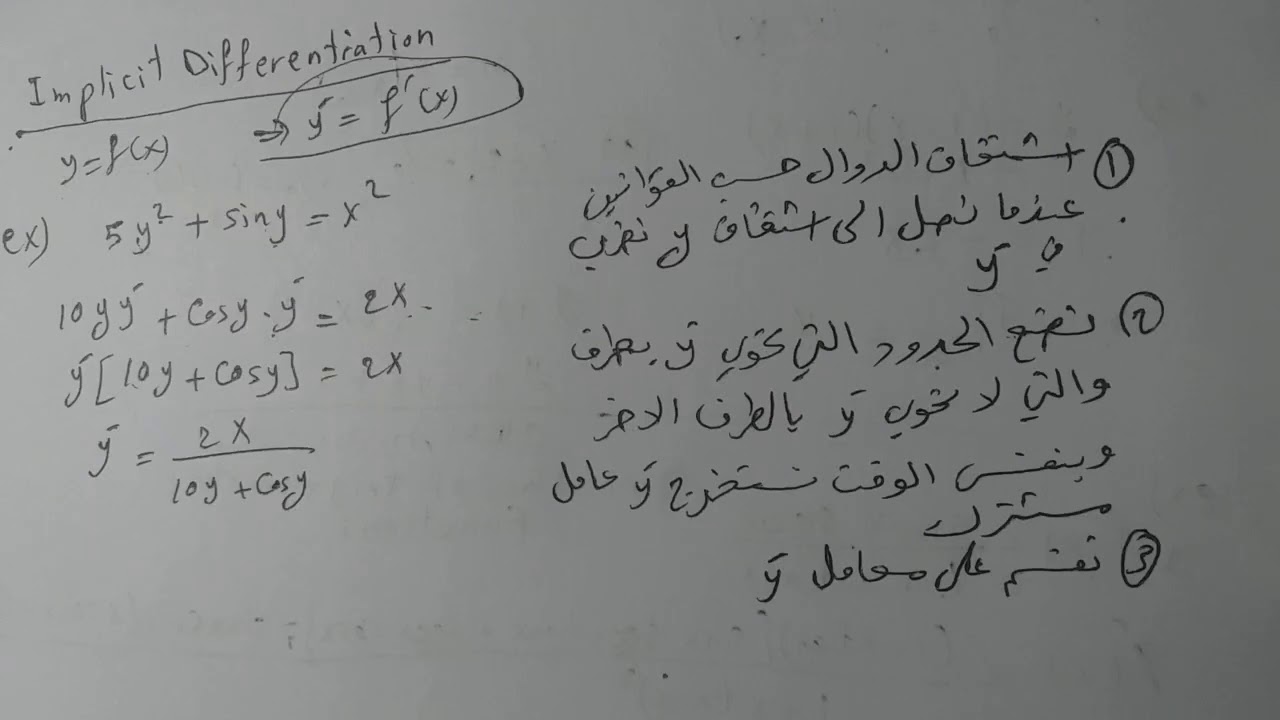 Implicit Differentiation
y=f(x) → y' = f'(x)
ex) 5y² + siny = x²
10yy' + cosy . y' = 2x
y'[10y + cosy] = 2x
y' = 2x / 10y + cosy
① اشتقاق الدوال حسب القوانين
عندما نصل الى اشتقاق y نضرب
في y'
② نضع الحدود التي تحوي y' بطرف
والتي لا تحوي y' بالطرف الاخر
وبنفس الوقت نستخرج y' عامل
مشترك
③ نقسم على معامل y'